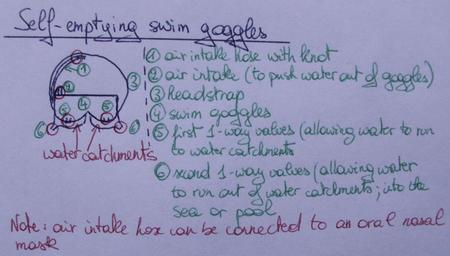 Self-emptying swim goggles
① air intake hose with knot
② air intake (to push water out of goggles)
③ Headstrap
④ swim goggles
⑤ first 1-way valves (allowing water to run
to water catchments
⑥ second 1-way valves (allowing water
to run out of water catchments; into the
sea or pool
1
2
3
5 4 5
6 6
water catchments
Note: air intake hose can be connected to an oral nasal
mask